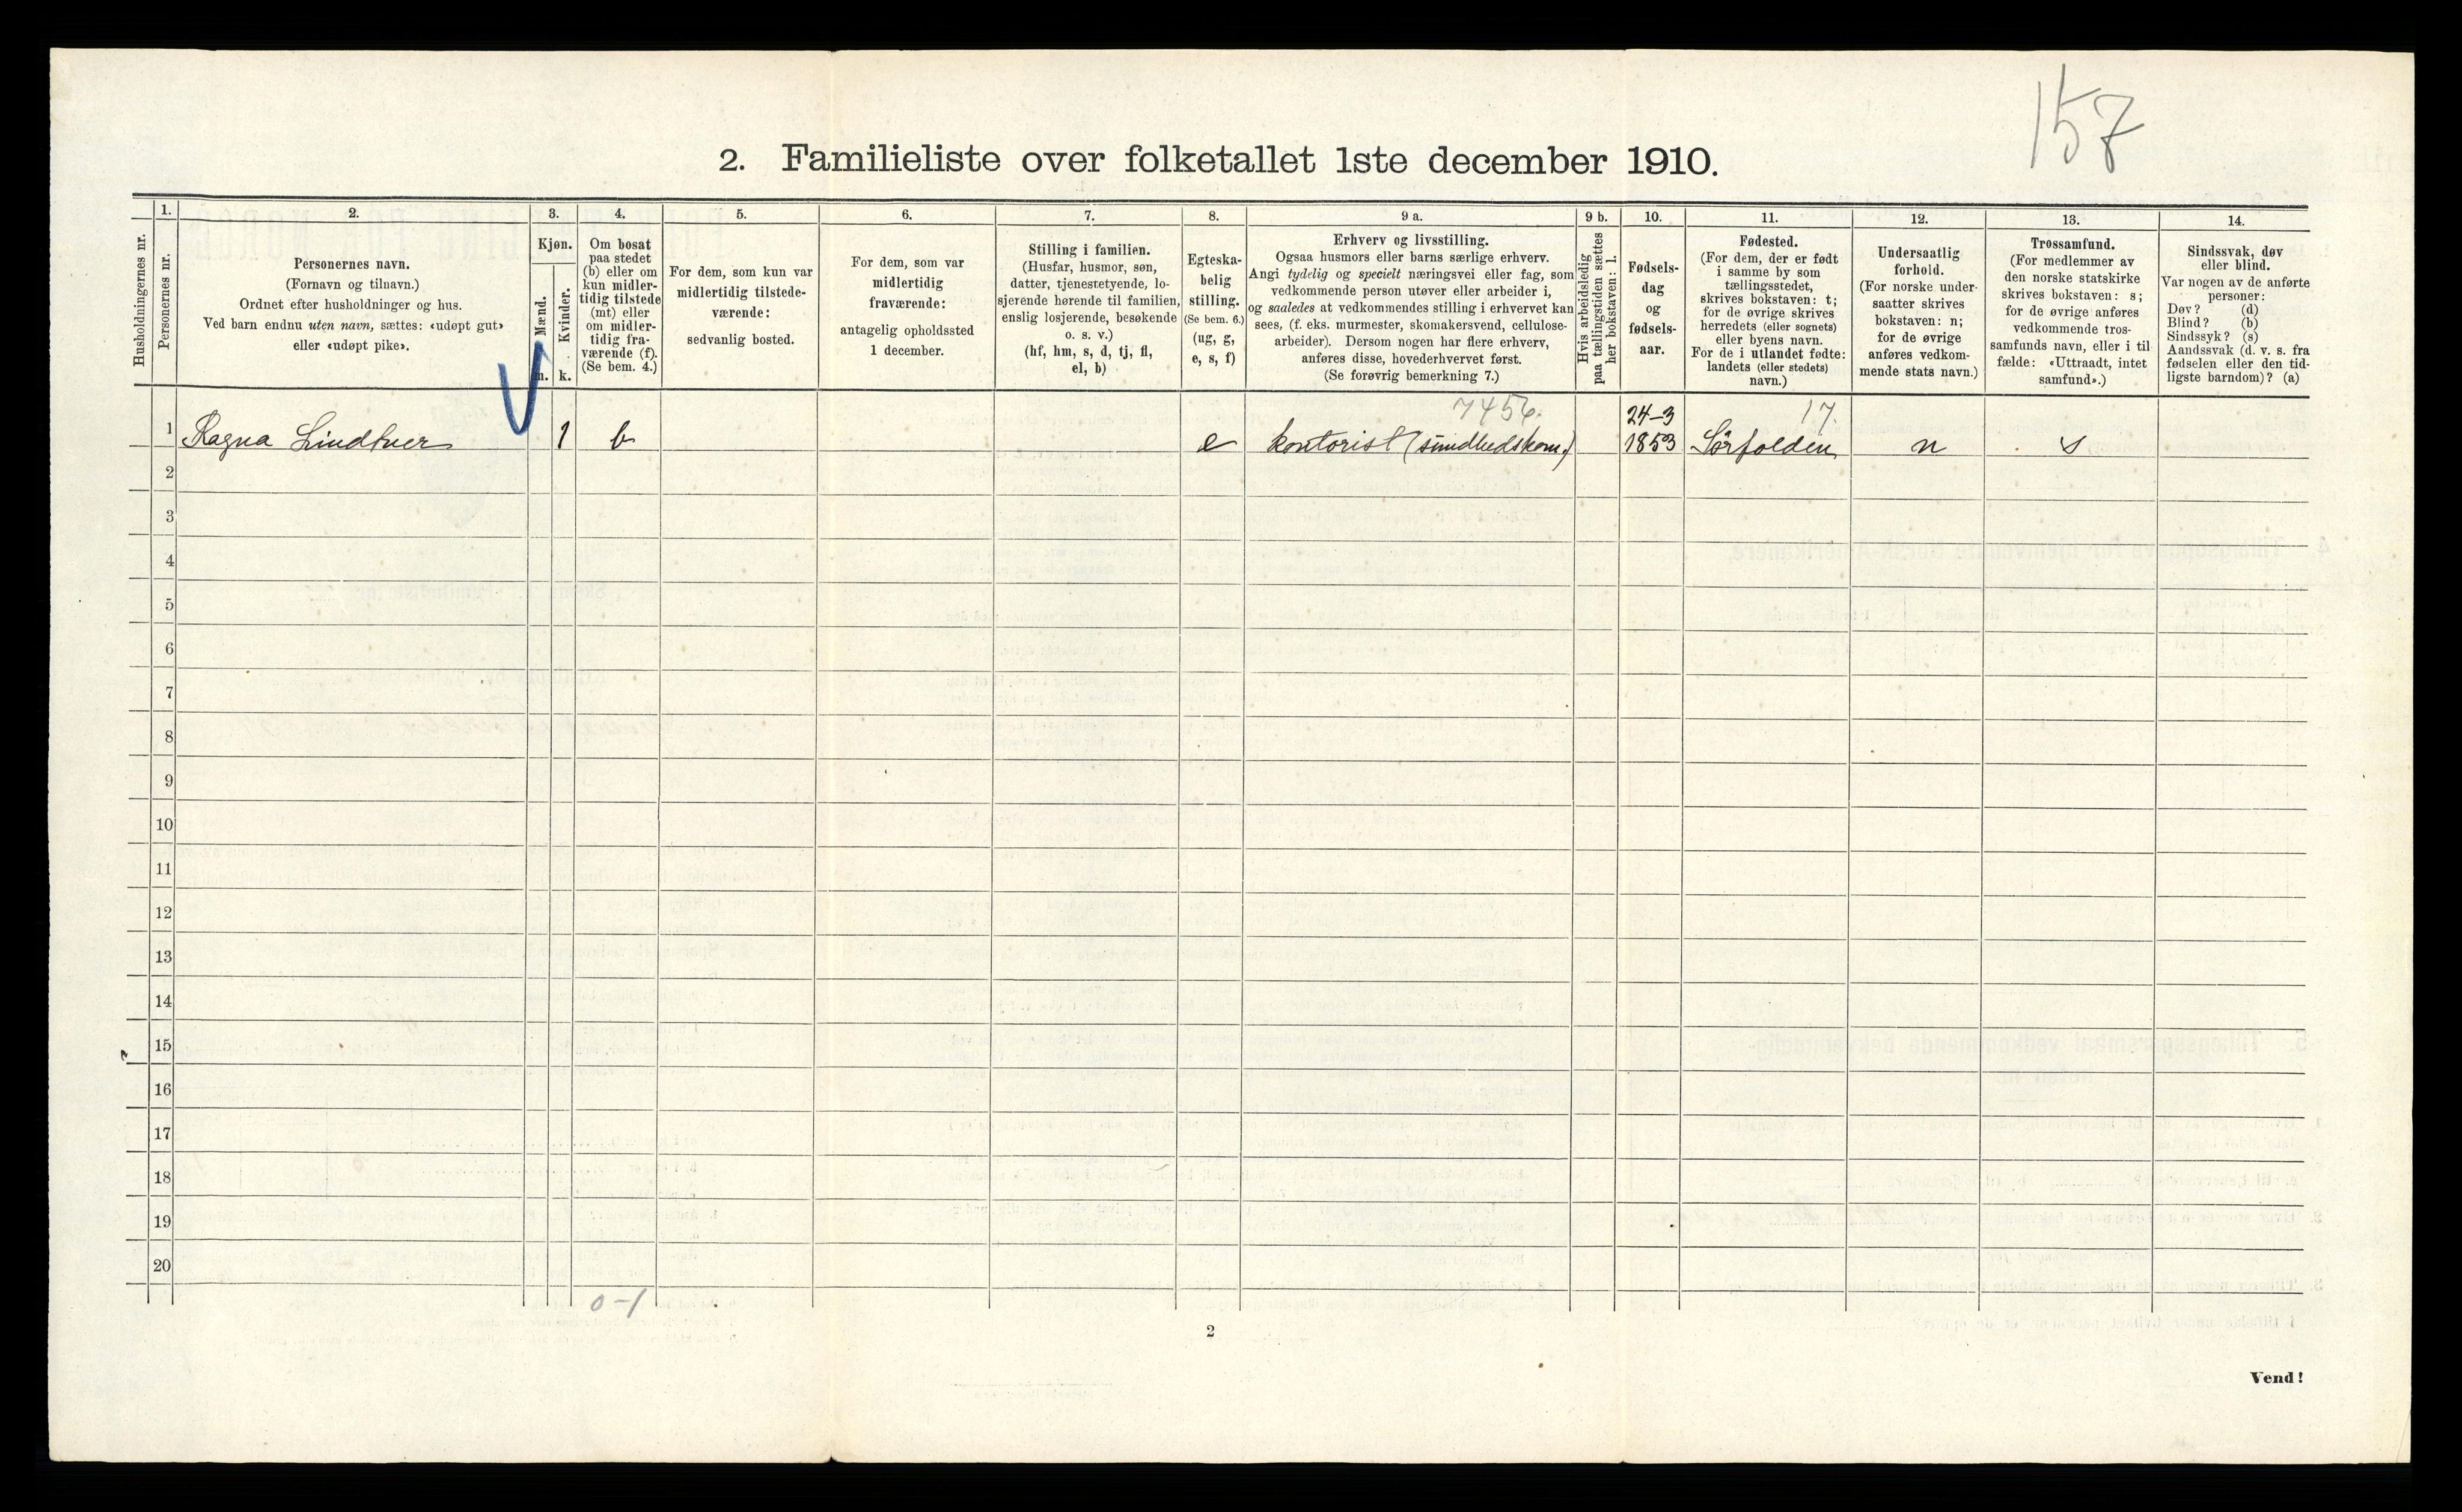 157
2. Familieliste over folketallet 1ste december 1910.
Husholdningernes nr.
1.
Personernes nr.
2.
Personernes navn.
(Fornavn og tilnavn.)
Ordnet efter husholdninger og hus.
Ved barn endnu uten navn, sættes: «udøpt gut»
eller «udøpt pike».
3.
Kjøn.
Mænd.
m.
Kvinder.
k.
4.
Om bosat
paa stedet
(b) eller om
kun midler-
tidig tilstede
(mt) eller
om midler-
tidig fra-
værende (f).
(Se bem. 4.)
5.
For dem, som kun var
midlertidig tilstede-
værende:
sedvanlig bosted.
6.
For dem, som var
midlertidig
fraværende:
antagelig opholdssted
1 december.
7.
Stilling i familien.
(Husfar, husmor, søn,
datter, tjenestetyende, lo-
sjerende hørende til familien,
enslig losjerende, besøkende
o. s. v.)
(hf, hm, s, d, tj, fl,
el, b)
8.
Egteska-
belig
stilling.
(Se bem. 6.)
(ug, g,
e, s, f)
9 a.
Erhverv og livsstilling.
Ogsaa husmors eller barns særlige erhverv.
Angi tydelig og specielt næringsvei eller fag, som
vedkommende person utøver eller arbeider i,
og saaledes at vedkommendes stilling i erhvervet kan
sees, (f. eks. murmester, skomakersvend, cellulose-
arbeider). Dersom nogen har flere erhverv,
anføres disse, hovederhvervet først.
(Se forøvrig bemerkning 7.)
9 b.
Hvis arbeidsledig
paa tællingstiden sættes
her bokstaven: l.
10.
Fødsels-
dag
og
fødsels-
aar.
11.
Fødested.
(For dem, der er født
i samme by som
tællingsstedet,
skrives bokstaven: t;
for de øvrige skrives
herredets (eller sognets)
eller byens navn.
For de i utlandet fødte:
landets (eller stedets)
navn.)
12.
Undersaatlig
forhold.
(For norske under-
saatter skrives
bokstaven: n;
for de øvrige
anføres vedkom-
mende stats navn.)
13.
Trossamfund.
(For medlemmer av
den norske statskirke
skrives bokstaven: s;
for de øvrige anføres
vedkommende tros-
samfunds navn, eller i til-
fælde: «Uttraadt, intet
samfund».)
14.
Sindssvak, døv
eller blind.
Var nogen av de anførte
personer:
Døv? (d)
Blind? (b)
Sindssyk? (s)
Aandssvak (d. v. s. fra
fødselen eller den tid-
ligste barndom)? (a)
7456. 24-3 17.
1 Ragna Lindtner 1 b e kontorist (sundhedskom.) 1853 Sörfolden n s
2
3
4
5
6
7
8
9
10
11
12
13
14
15
16
17
18
19
20
0-1
2
Vend!